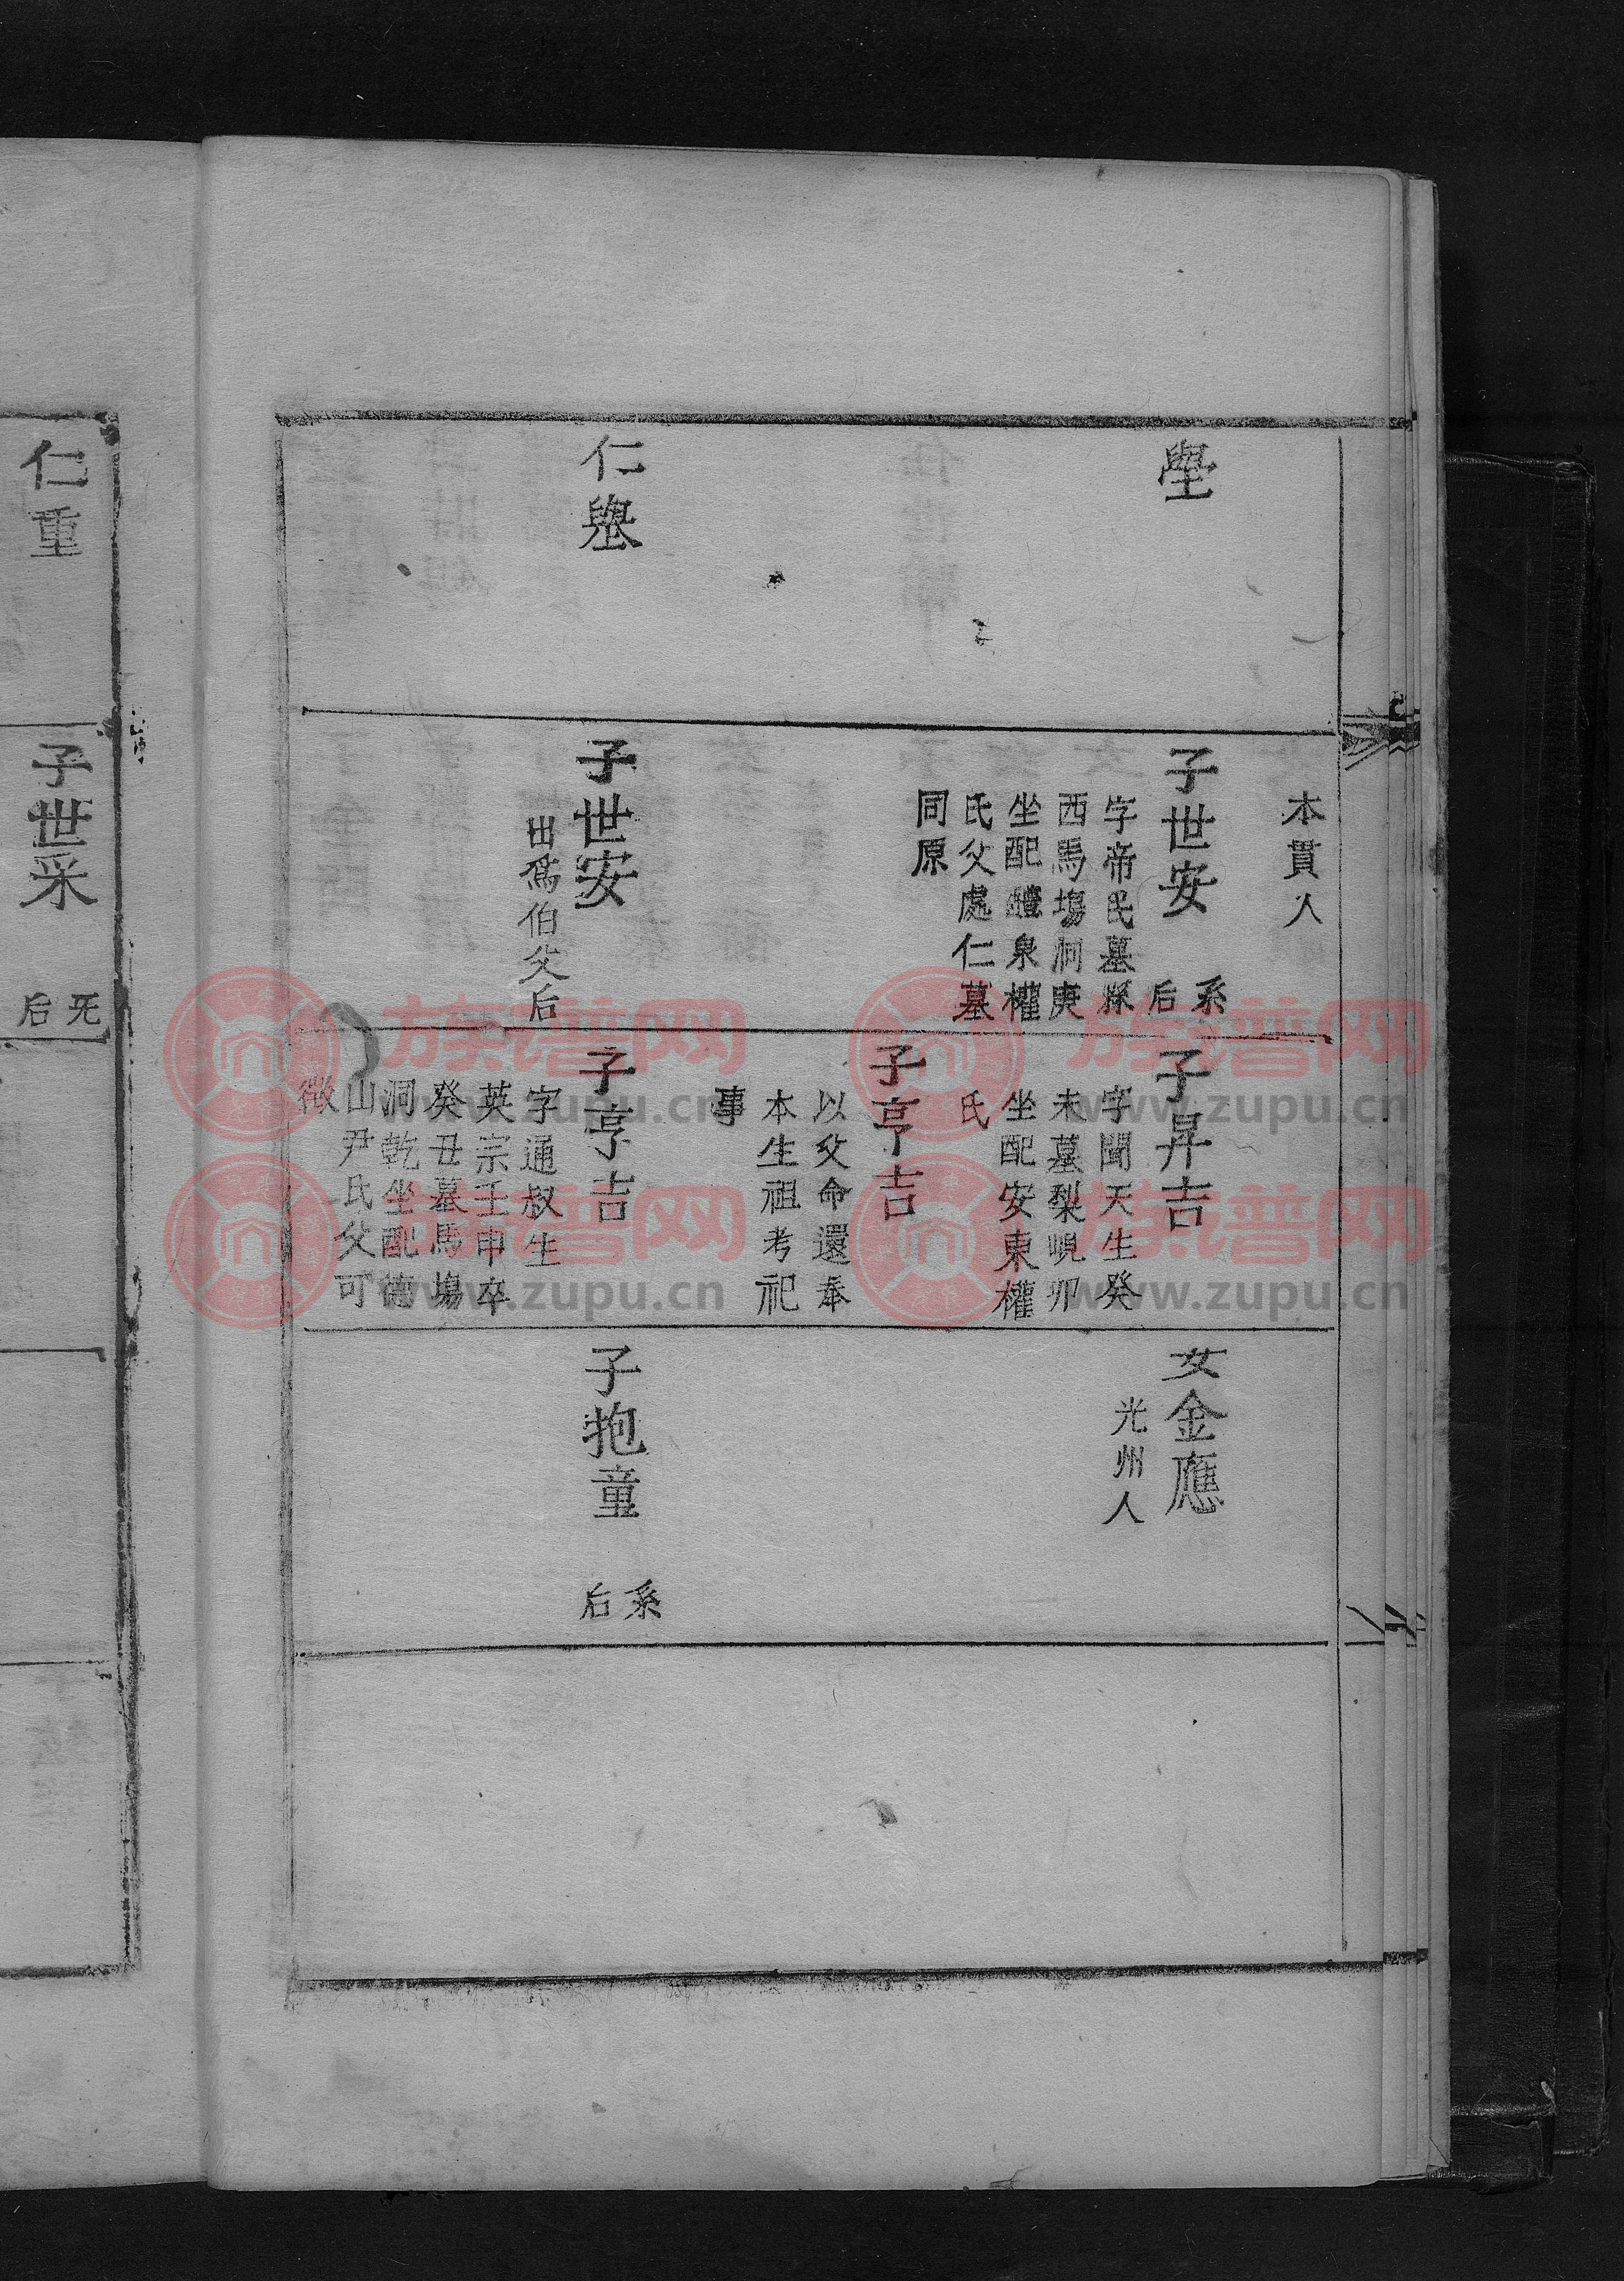 本貫人
壆
子世安 系后
字帝民墓採
西馬塲洞庚
坐配醴泉權
氏父處仁墓
同原
子昇吉
字聞天生癸
未墓梨峴卯
坐配安東權
氏
子亨吉
以父命還奉
本生祖考祀
事
女金應
光州人
仁壆
子世安
出爲伯父后
子亨吉
字通叔生
英宗壬申卒
癸丑墓馬塲
洞乾坐配德
山尹氏父可
徵
子抱童 系后
仁重
子世采 旡后
族谱网
www.zupu.cn
族谱网
www.zupu.cn
族谱网
www.zupu.cn
族谱网
www.zupu.cn